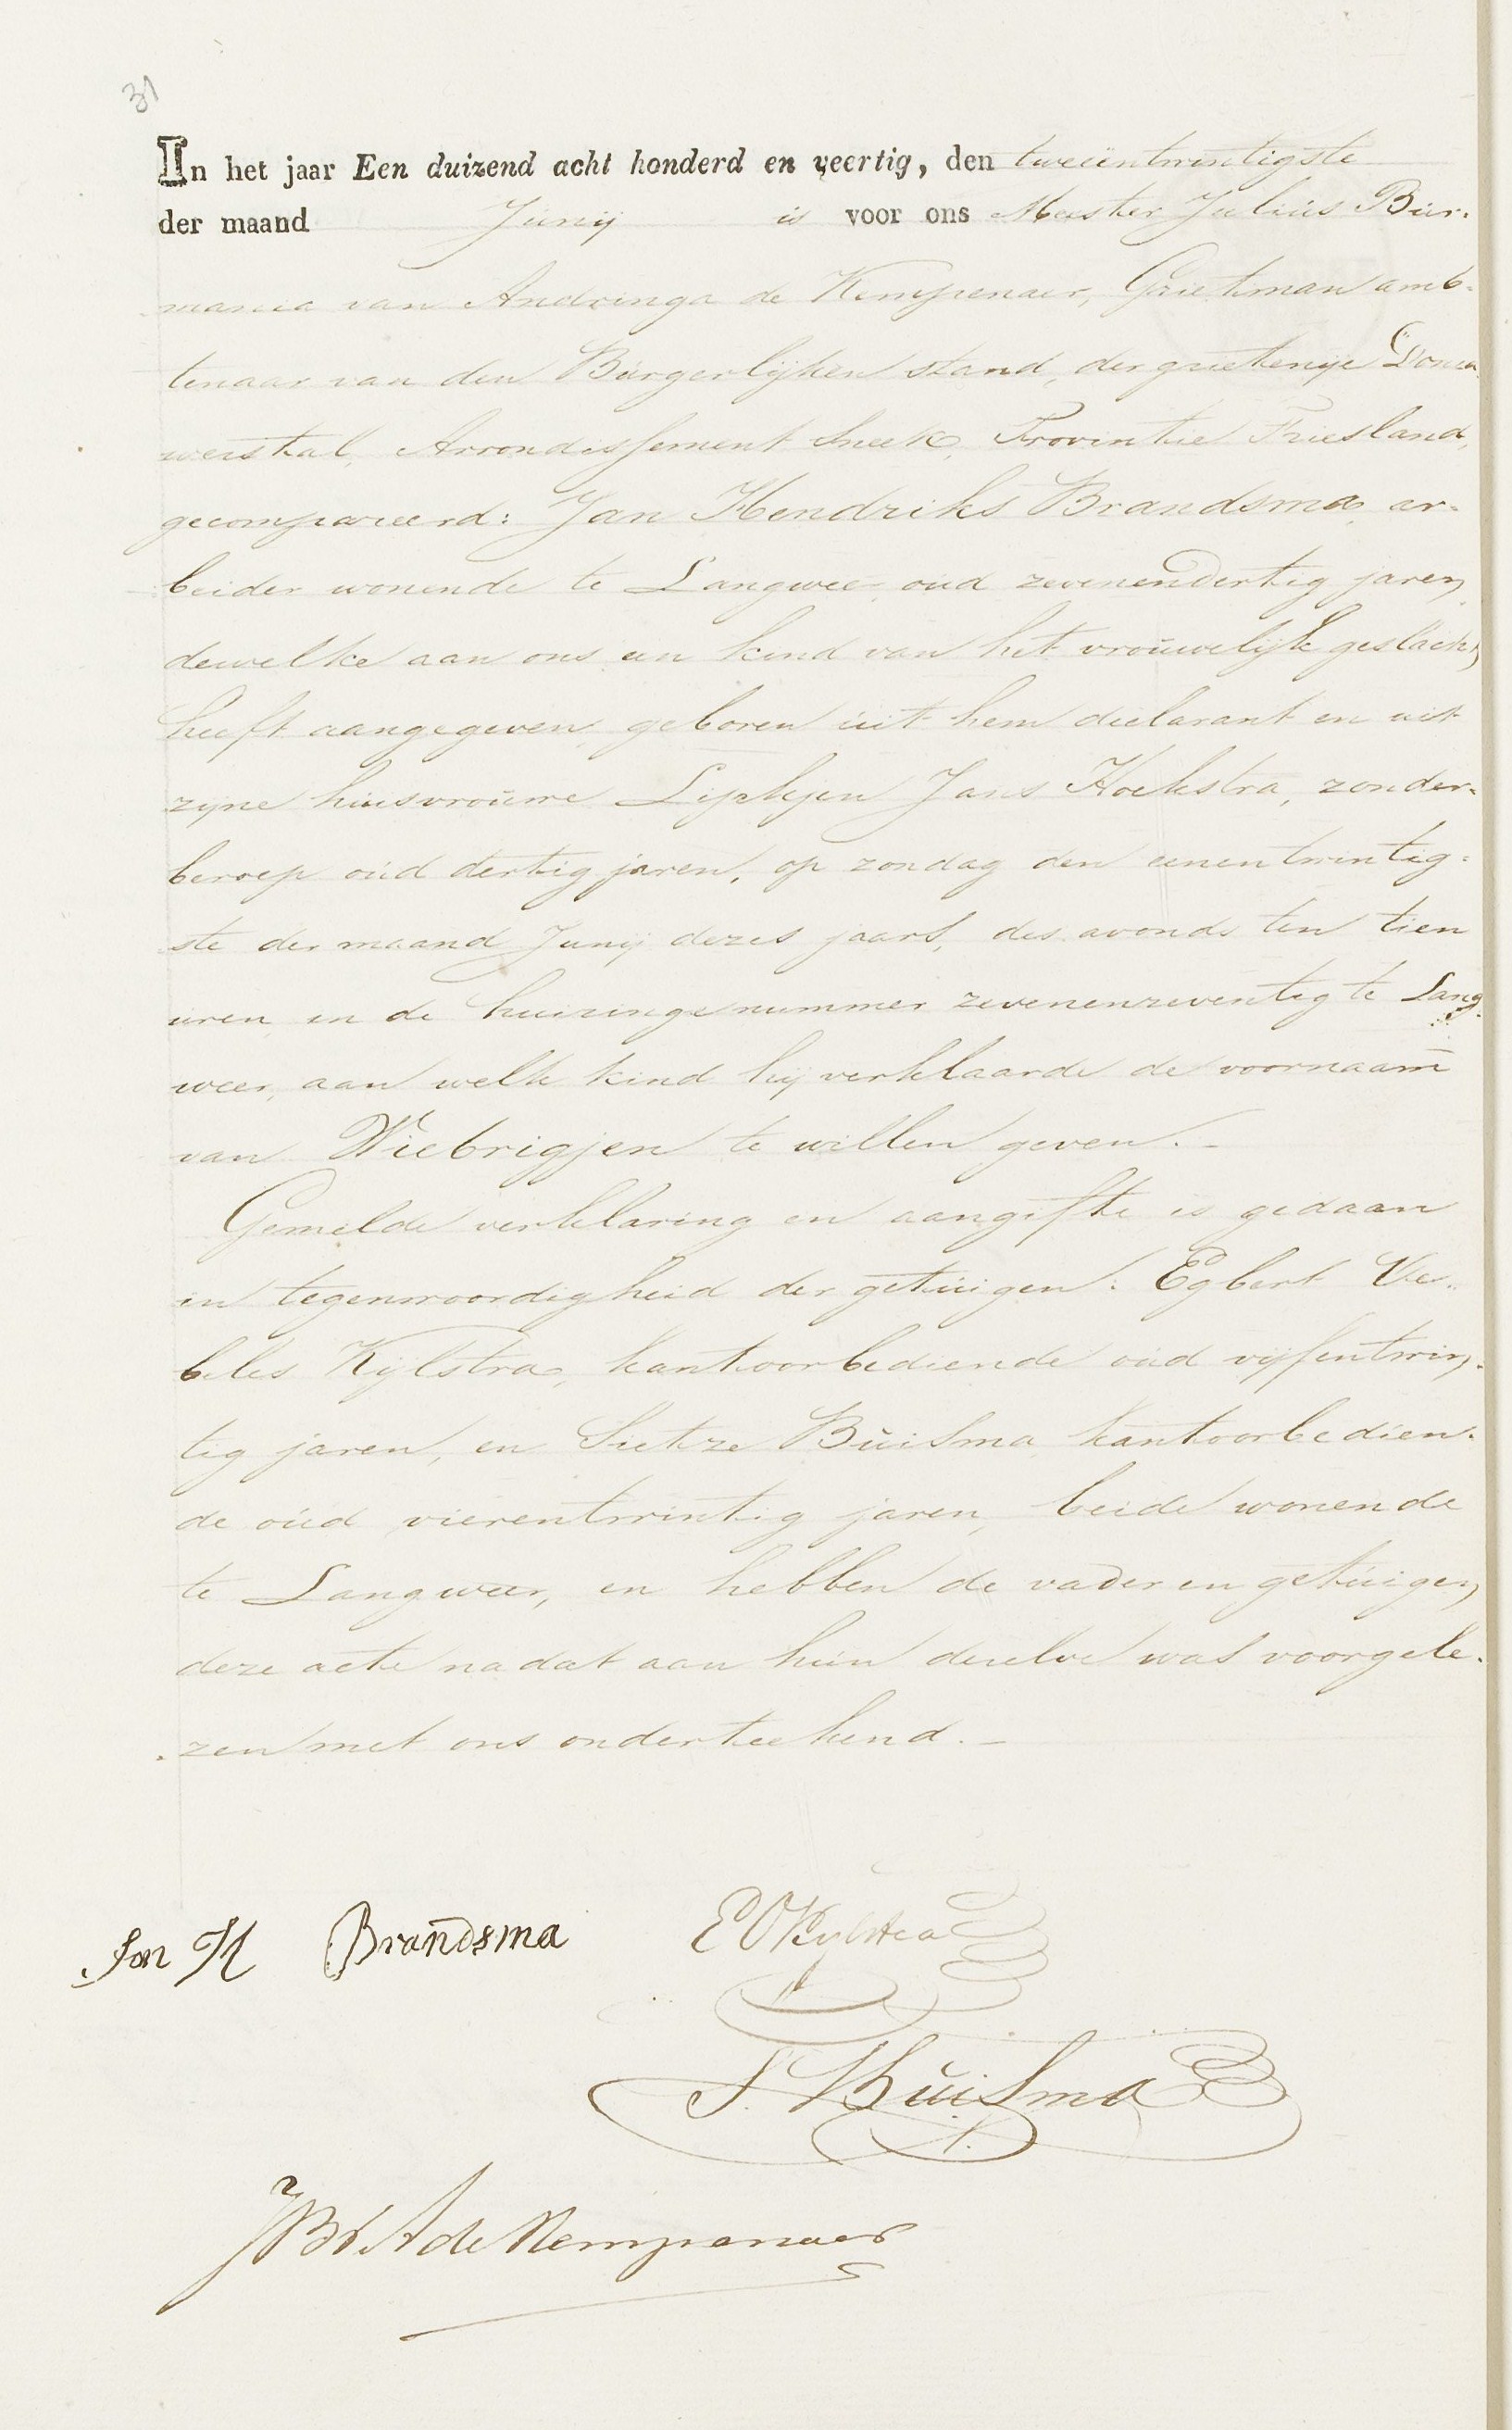 31
In het jaar Een duizend acht honderd en veertig, den tweeëntwintigste
der maand Junij is voor ons Meester Julius Bur-
mania van Andringa de Kempenaer, Grietman amb-
tenaar van den Burgerlijken stand, der grietenije Donia
werstal, Arrondissement Sneek, Provintie Friesland,
gecompareerd: Jan Hendriks Brandsma, ar-
beider wonende te Langweer oud zevenendertig jaren
dewelke aan ons een kind van het vrouwelijk geslacht
heeft aangegeven, geboren uit hem declarant en uit
zijne huisvrouwe Lijpkjen Jans Hoekstra, zonder-
beroep oud dertig jaren, op zondag den eenentwintig-
ste der maand Junij dezes jaars, des avonds ten tien
uren in de huizinge nummer zevenenzeventig te Lang-
weer, aan welk kind hij verklaarde de voornaam
van Wiebrigjen te willen geven.-
Gemelde verklaring en aangifte is gedaan
in tegenwoordigheid der getuigen: Egbert Ve-
beles Kijlstra, kantoorbediende oud vijfentwin-
tig jaren, en Sietze Buisma kantoorbedien-
de oud vierentwintig jaren, beide wonende
te Langweer, en hebben de vader en getuigen
deze acte na dat aan hun dezelve was voorgele-
zen met ons onderteekend.-
Jan H Brandsma E V Kylstra
S. Buisma
JBvAdeKempenaer